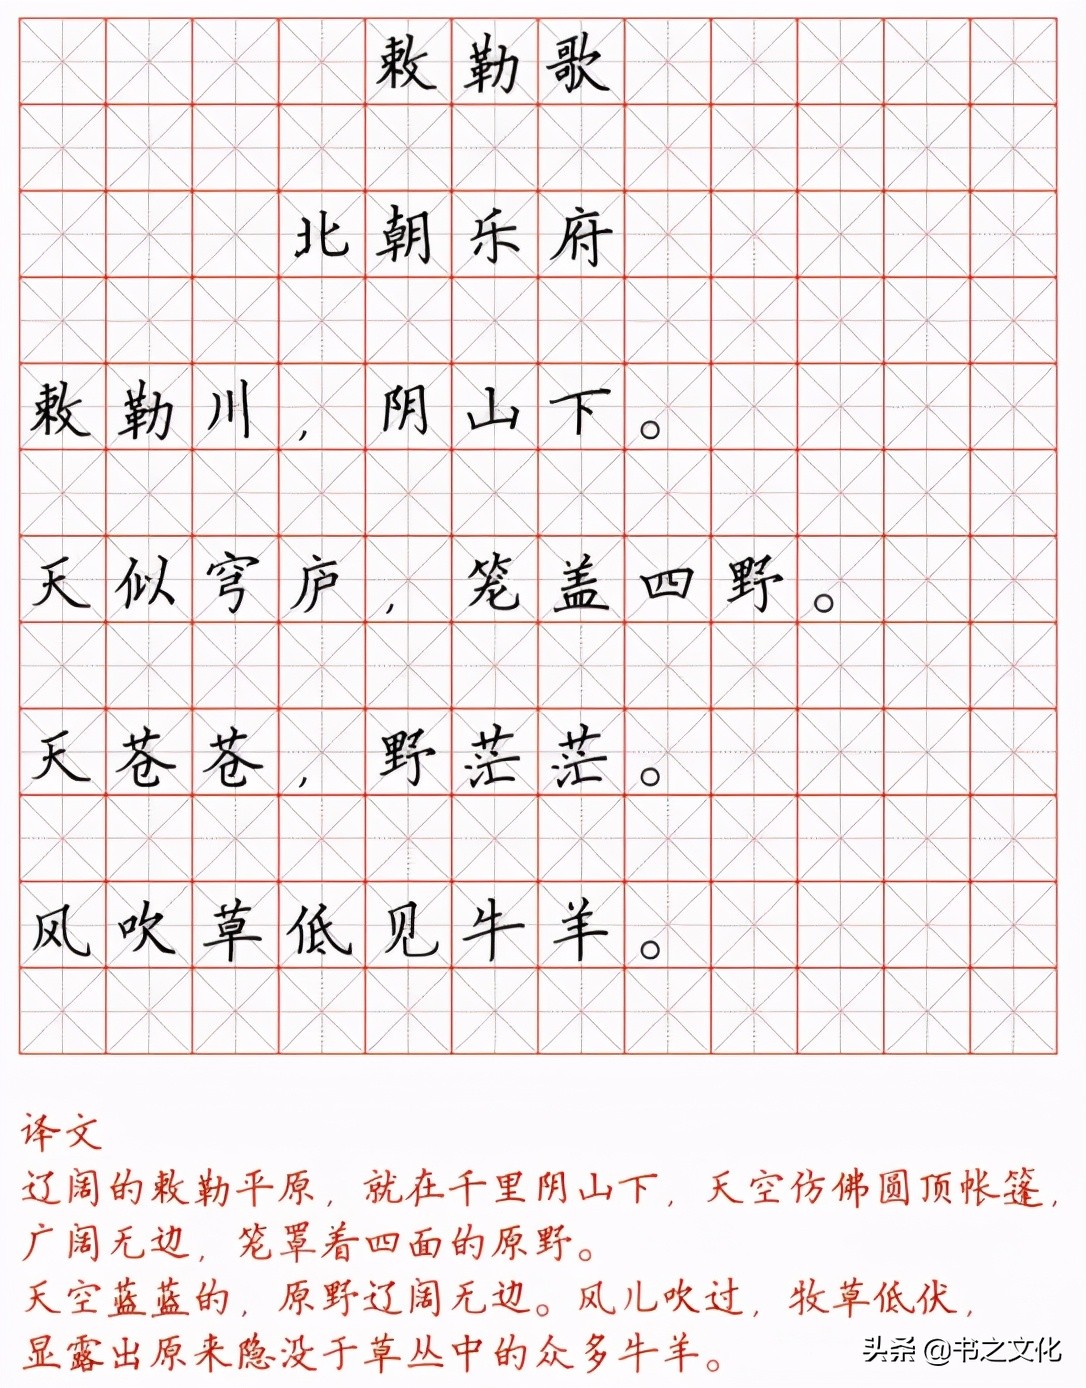 敕勒歌
北朝乐府
敕勒川，阴山下。
天似穹庐，笼盖四野。
天苍苍，野茫茫。
风吹草低见牛羊。
译文
辽阔的敕勒平原，就在千里阴山下，天空仿佛圆顶帐篷，
广阔无边，笼罩着四面的原野。
天空蓝蓝的，原野辽阔无边。风儿吹过，牧草低伏，
显露出原来隐没于草丛中的众多牛羊。
头条 @书之文化